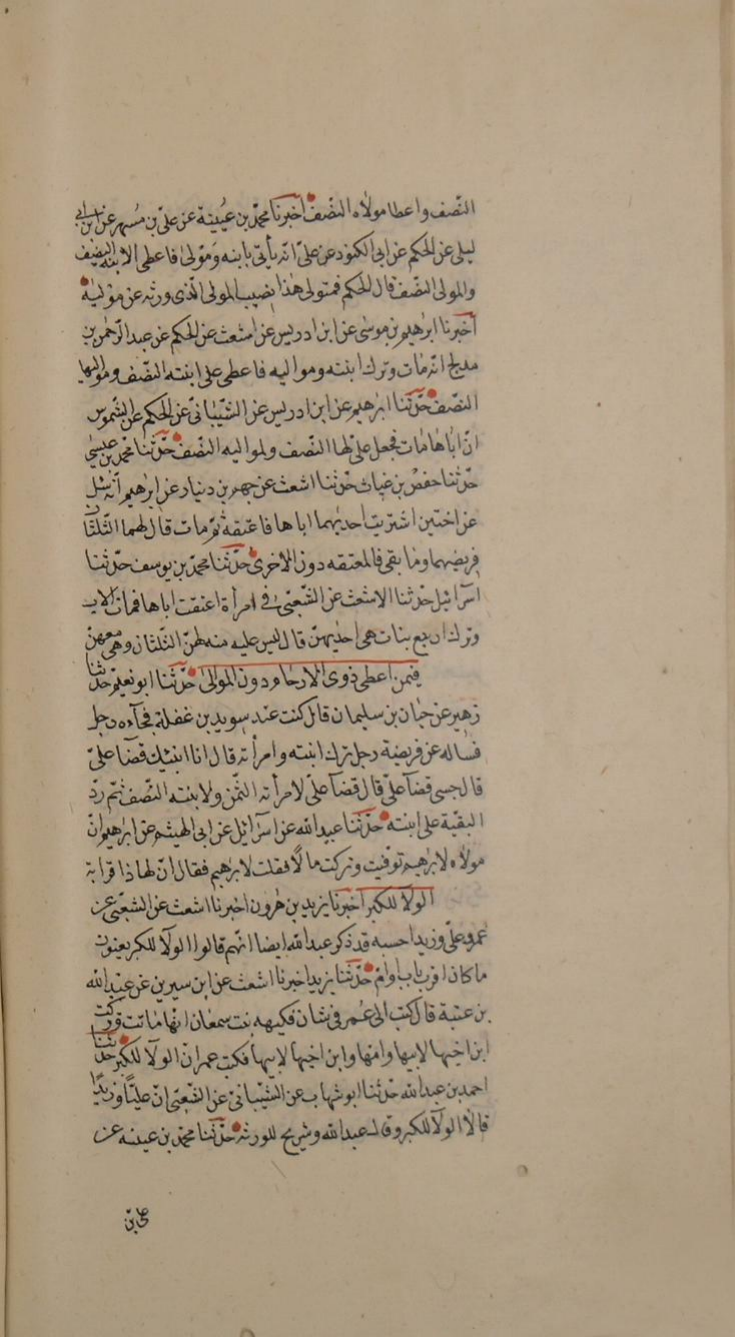 النّصف واعطا مولاه النصف اخبرنا محمّد بن عيينة عن علىّ بن مُسهر عن ابن ابى
ليلى عن الحكم عن ابى الكنود عن علىّ انّه يأتى بابنه ومولى فاعطى الابنه النصف
والمولى النصف قال الحكم فمتولى هذا نصيب المولى الّذى ورثه عن مولية
اخبرنا ابرهيم بن موسى عن ابن ادريس عن اشعث عن الحكم عن عبد الرّحمن بن
مدلج انّه مات وترك ابنته ومواليه فاعطى على ابنته النّصف ومواليها
النصف حدّثنا ابرهيم عن ابن ادريس عن الشّيبانىّ عن الحكم عن الشموس
انّ اباها مات فجعل علىّ لها النّصف ولمواليه النّصف حدّثنا محمّد بن عيسى
حدّثنا حفص بن غياث حدّثنا اشعث عن جهم بن دينار عن ابرهيم انّه سُئل
عن اختين اشتريت احديهما اباها فاعتقه ثمّ مات قال لهما الثّلثان
فريضهما وما بقى فللمعتقه دون الاخرى حدّثنا محمّد بن يوسف حدّثنا
اسرآئيل حدّثنا الاشعث عن الشّعبىّ فى امرأة اعتقت اباها فمات الاب
وترك اربع بنات هى احديهنّ قال ليس عليه منه لهنّ الثّلثان وهى معهنّ
فيمن اعطى ذوى الارحام دون الموالى حدّثنا ابو نعيم حدّثنا
زهير عن حيان بن سليمان قال كنت عند سويد بن غفلة فجآءه رجل
فساله عن فريضة رجل ترك ابنته وامرأته قال انا انبئك قضآء علىّ
قال حسبى قضآ علىّ قال قضآ علىّ لامرأته الثّمن ولابنته النّصف ثمّ ردّ
البقية على ابنته حدّثنا عبيد الله عن اسرآئيل عن ابى الهيثم عن ابرهيم انّ
مولاه لابرهيم توفيت وتركت مالًا فقلت لابرهيم فقال انّ لها ذا قرابة
الولآ للكبر اخبرنا يزيد بن هرون اخبرنا اشعث عن الشعبىّ عن
عمر وعلىّ وزيد احسبه قد ذكر عبد الله ايضا انّهم قالوا الولآ للكبر يعنون
ما كان اقرب باب وامّ حدّثنا يزيد اخبرنا اشعث عن ابن سيرين عن عبد الله
بن عتبة قال كتب الى عمر فى شان فكيهه بنت سمعان انّها ماتت وتركت
ابن اخيها لابيها وامّها وابن اخيها لابيها فكتب عمر انّ الولآ للكبر حدّثنا
احمد بن عبد الله حدّثنا ابو شهاب عن الشّيبانىّ عن الشّعبىّ انّ عليّا وزيدًا
قالا الولآ للكبر وقال عبد الله وشريح للورثه حدّثنا محمّد بن عيينه عن
علىّ بن